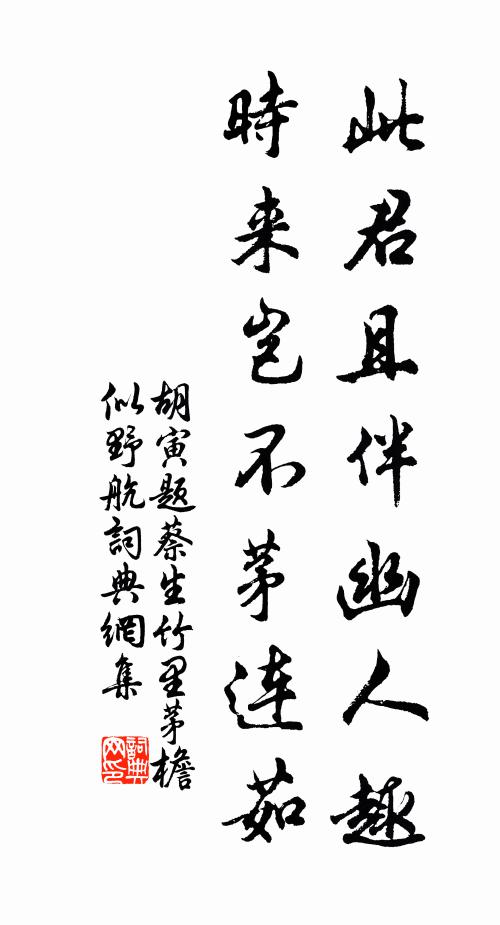 此君且伴幽人趣
時来岂不茅連茹
胡寅题蔡生竹里茅檐
似野航詞典網集
詞典網印